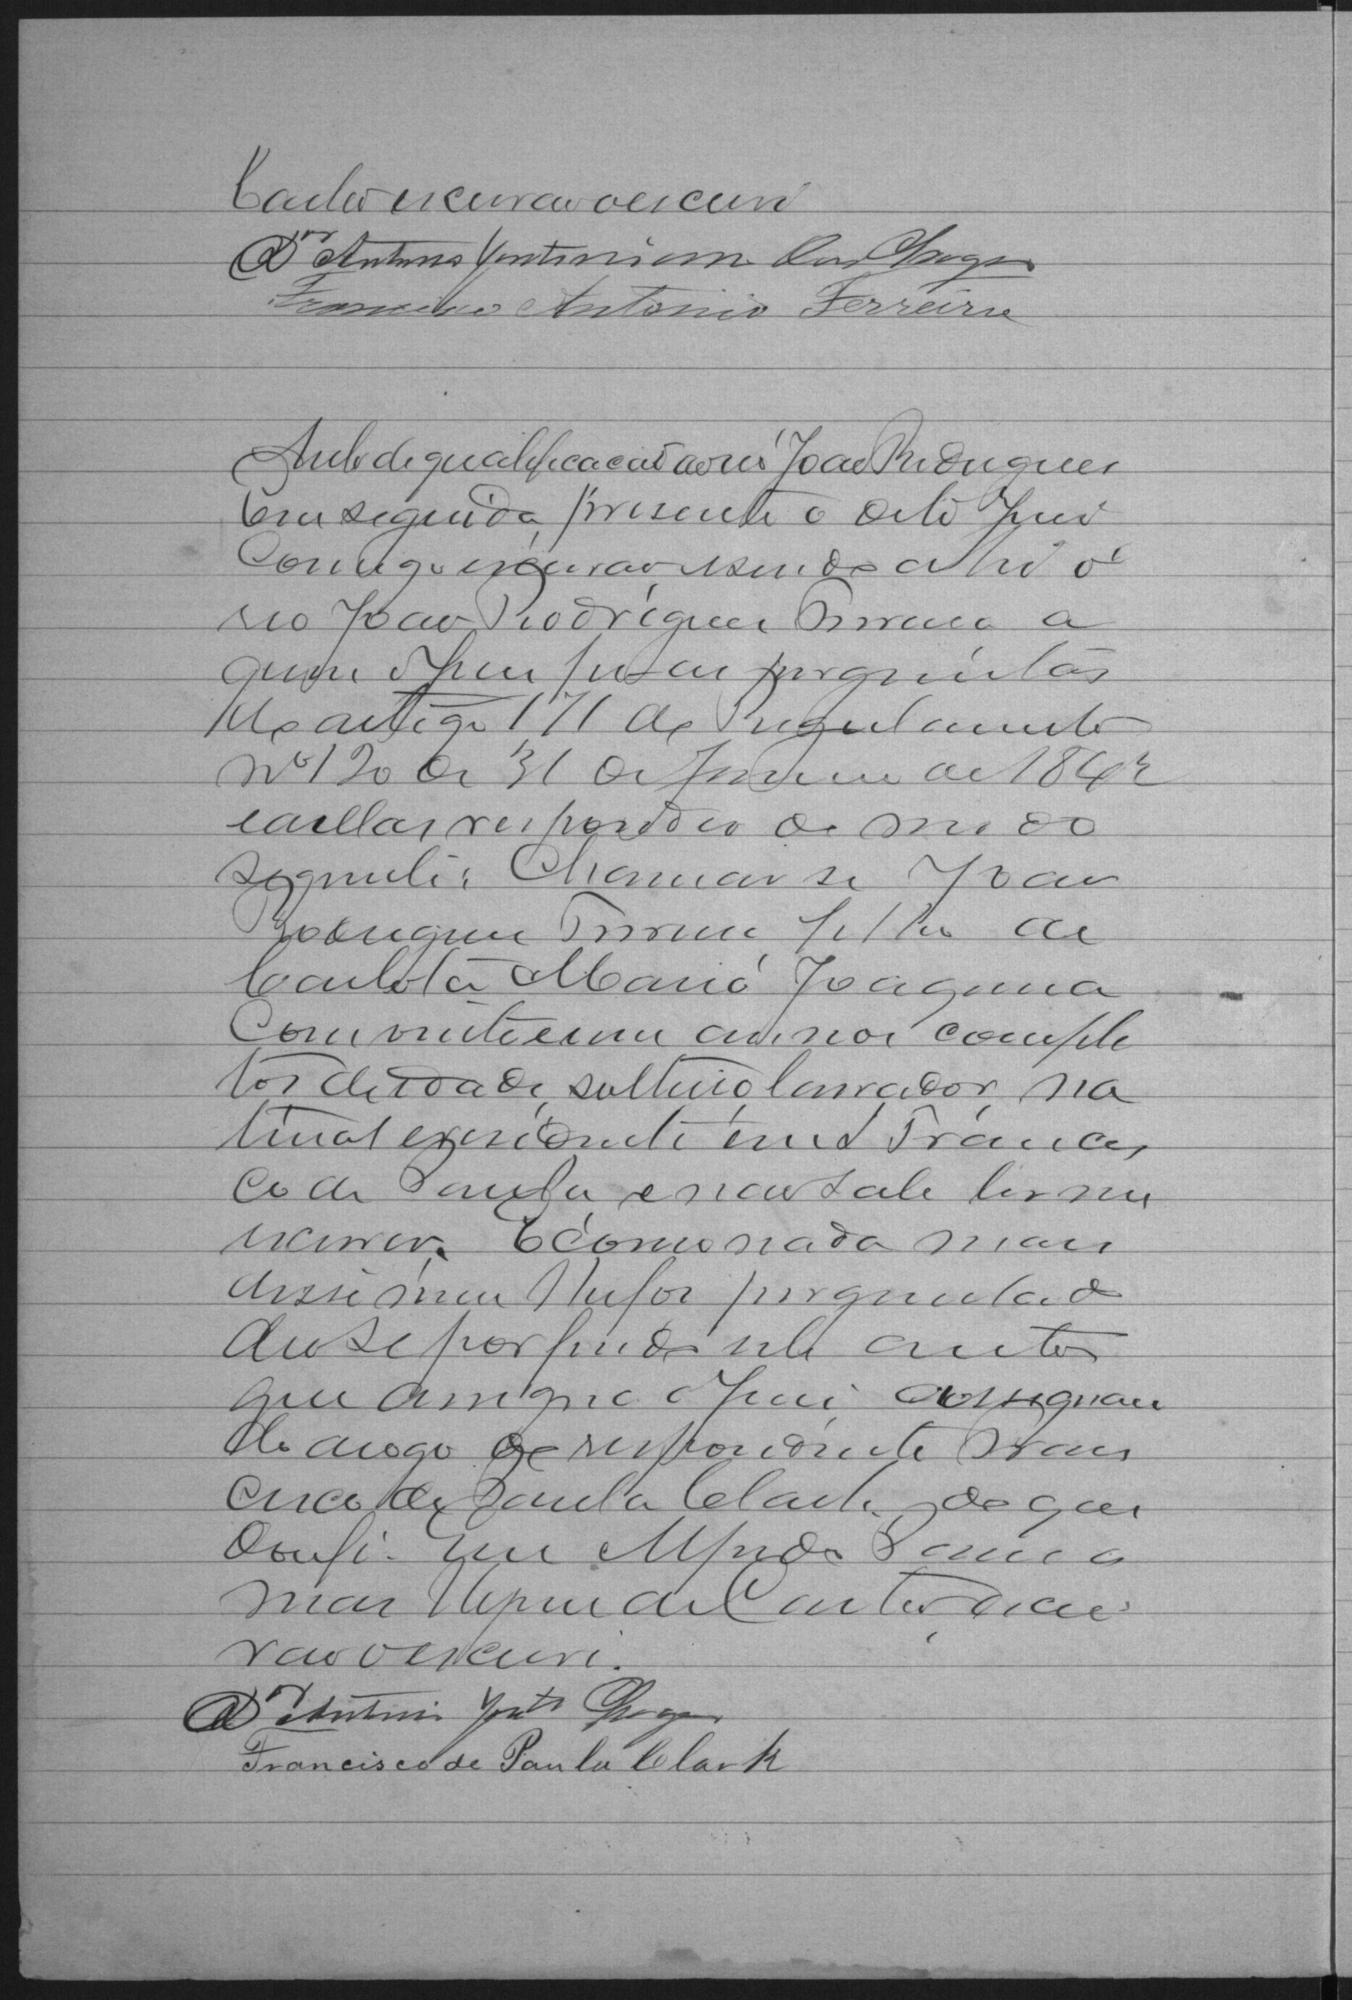 Castro escrivão o escrevi
Dr Antonio
Francisco Antonio Ferreira
Auto de qualificação ao réo João Rodrigues
Em seguida, presente o dito Juiz
Comigo escrivão sendo ahi o
reo João Rodrigues a
quem o Juiz fes as perguntas
do artigo 171 do Regulamento
nº 120 de 31 de Janeiro de 1842
e a ellas respondeo do modo
seguinte: Chamar se João
Rodrigues filho de
Carlota Maria Joaquina
Com vinte e um annos comple
tos de idade, solteiro, lavrador, na
tural e residente em S Francis
co de Paula, e não sabe ler nem
escrever. E como nada mais
disse nem lhe foi perguntado
deu se por findo este auto
que assigna o Juiz assignan
do a rogo do respondente Fran
cisco de Paula Clark, do que
dou fé. Eu Alfredo
mar de Castro escri
vão o escrevi.
Dr Antonio
Francisco de Paula Clark